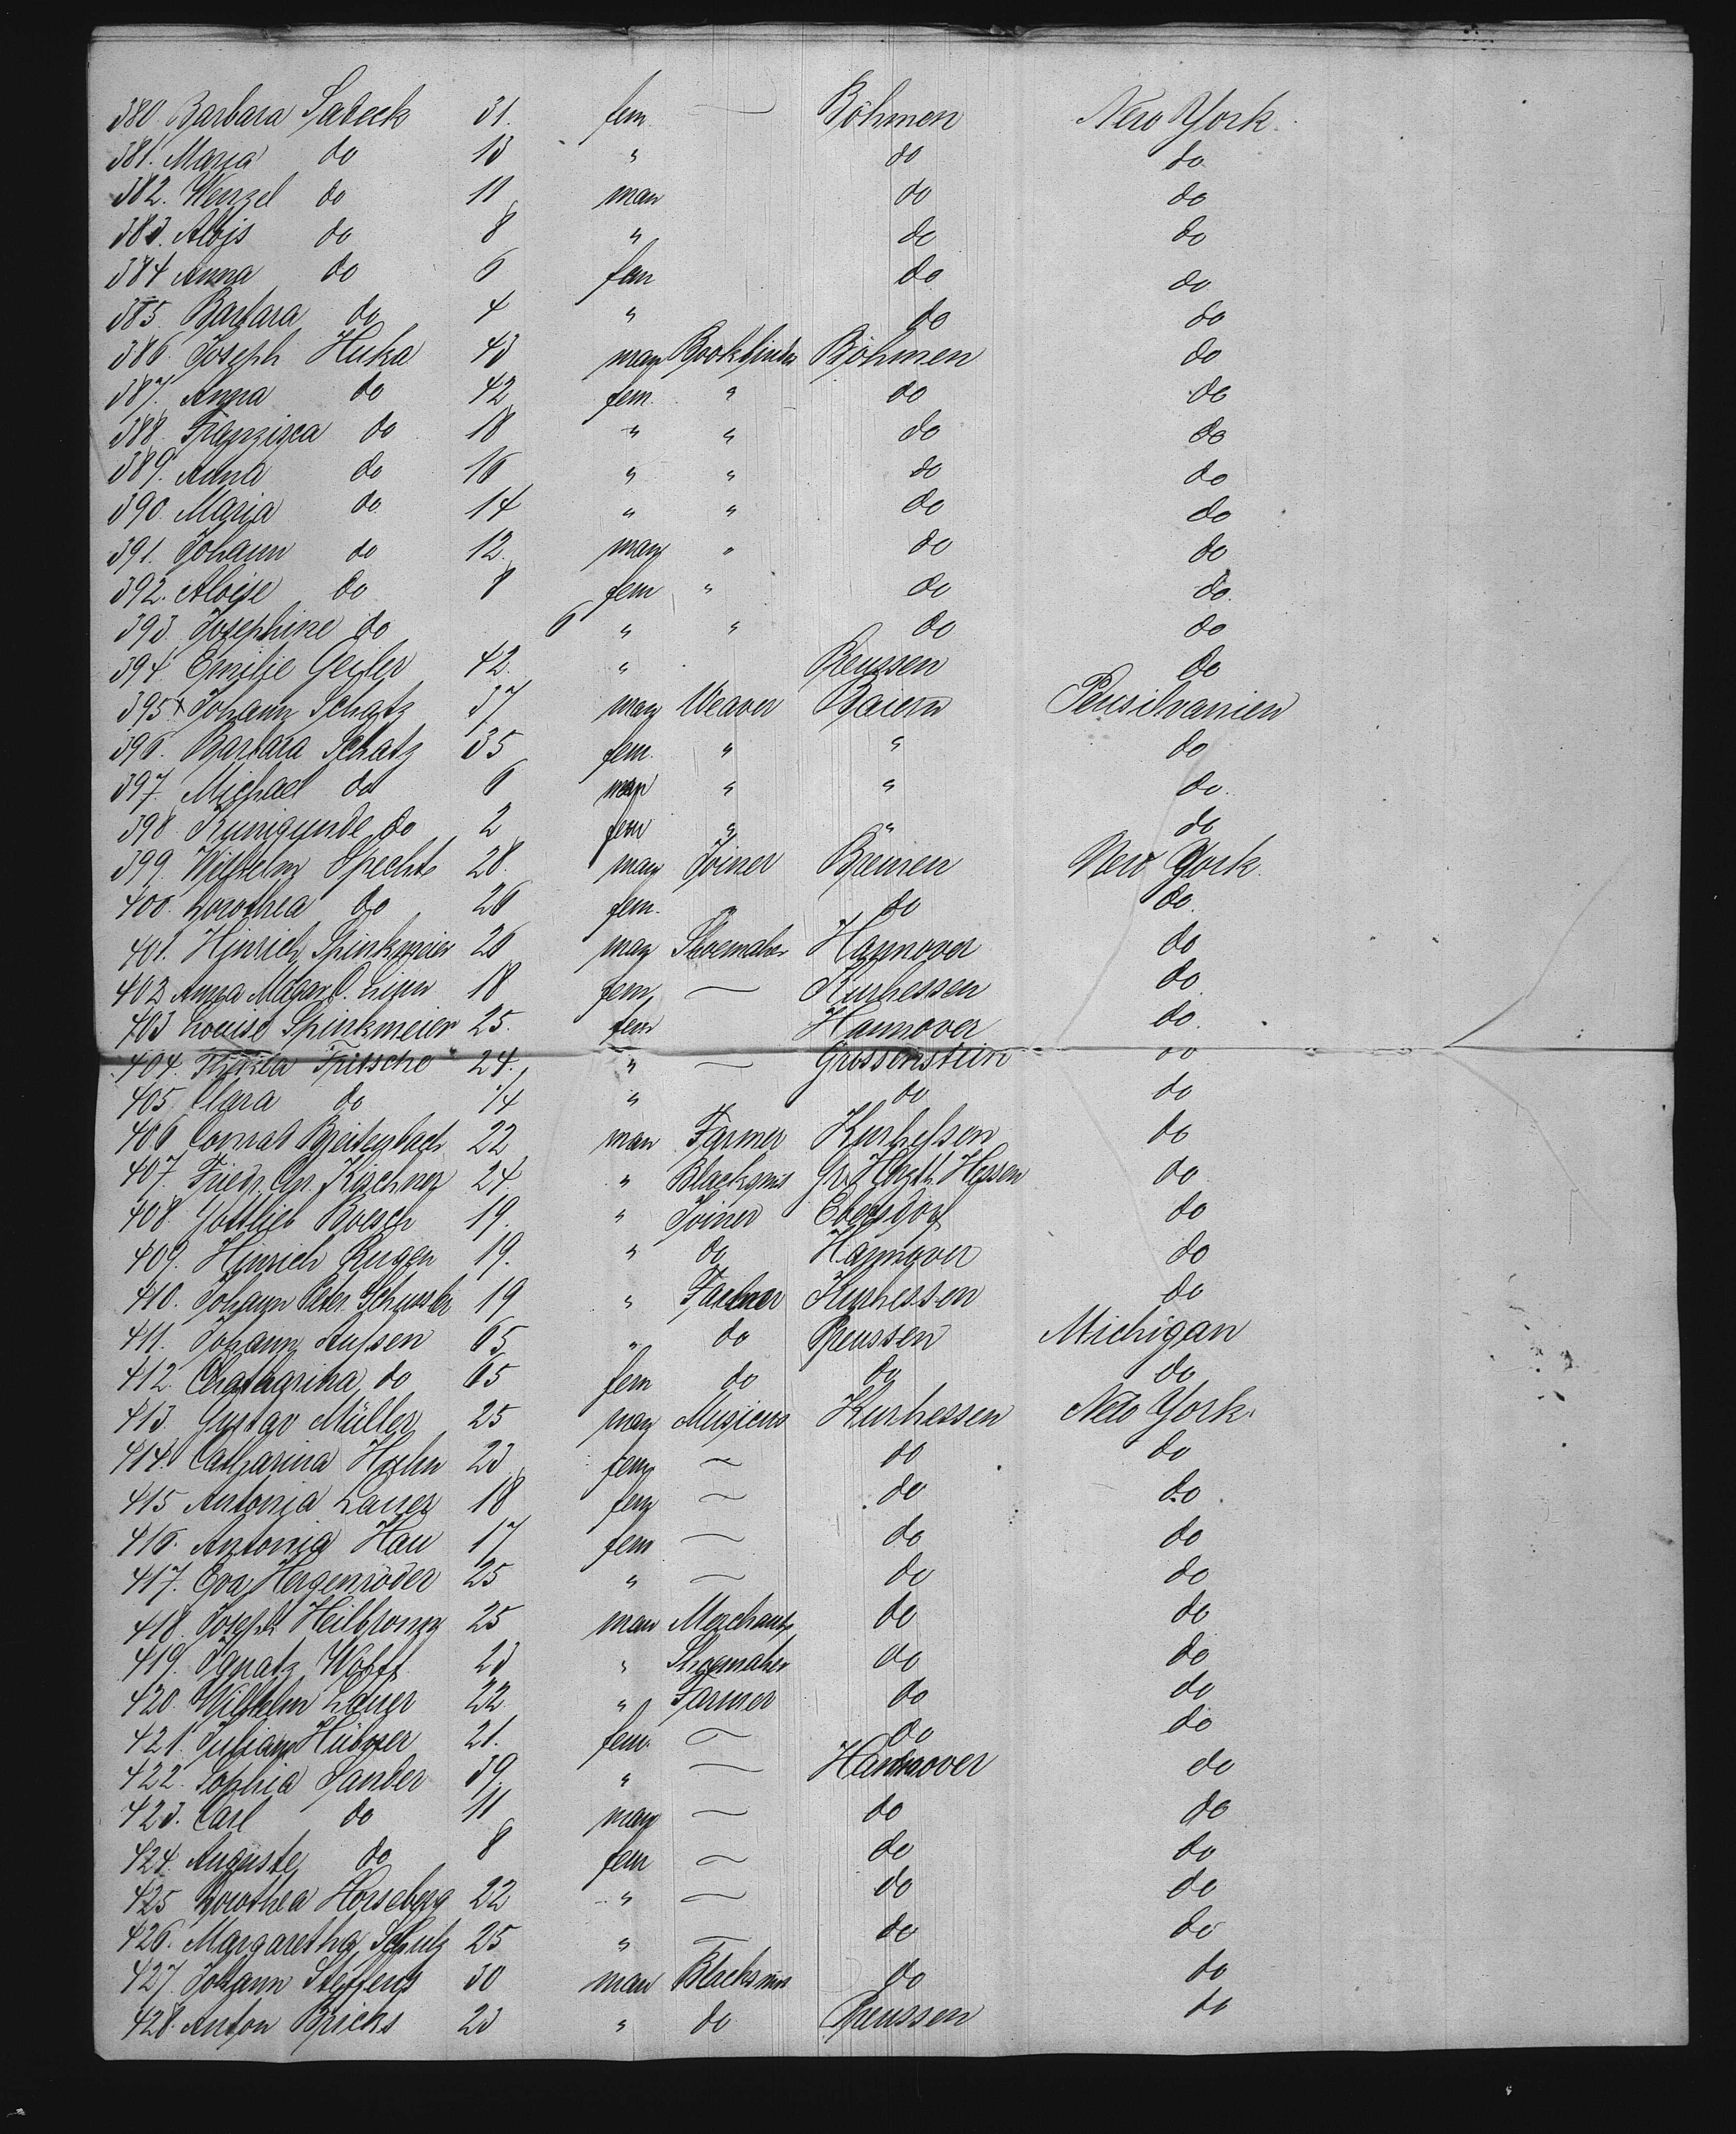 380. Barbara Sadeck 31. fem. — Böhmen New York.
381. Maria do 13 " do do
382. Wenzel do 11 man do do
383. Alojs do 8 " do do
384 Anna do 6 fem do do
385 Barbara do 4 " do do
386. Joseph Huka 43 man Bookbinder Böhmen do
387. Anna do 42 fem. " do do
388 Franzisca do 18 " " do do
389. Anna do 16 " " do do
390. Maria do 14 " " do do
391. Johann do 12. man " do do
392. Aloise do 8 fem " do do
393. Josephine do 6 " " do do
394 Emilie Geiler 42. " Preussen do
395 x Johann Schatz 37 man Weaver Baiern Pensilvanien
396. Barbara Schatz 35 fem. " " do
397. Michael do 6 man " " do
398 Kunigunde do 2 fem " " do
399. Wilhelm Specht 28. man Joiner Bremen New York
400. Dorothea do 26 fem. " do do
401. Hinrich Spinkmeier 26 man Shoemaker Hannover do
402 Anna 18 fem — Kurhessen do
403 Louise Spinkmeier 25. fem Hannover do
404. Fritsche 24. " — Grossenstein do
405 Clara do 1/4 " do do
406 Conrad Breitenbach 22 man Farmer Kurhessen do
407. Friedr. Kirchner 24. " Blacksmis Hessen do
408. Gottlieb Boesch 19. " Joiner Ebersdorf do
409. Hinrich Rugen 19. " do Hannover do
410. Johann Peter 19 " Farmer Kurhessen do
411. Johann 65 " do Preussen Michigan
412. Chatharina do 65 fem do do do
413. Gustav Müller 25 man Musicus Kurhessen New York.
414. Catharina Huhn 23 fem — do do
415 Antonia Lauer 18 fem — do do
416. Antonia Hau 17 fem — do do
417. Eva Hergenröder 25 " — do do
418. Joseph Heilbronn 25 man Merchant do do
419. Ignatz Wolff 23 " Shoemaker do do
420. Wilhelm Lauer 22 " Farmer do do
421. Hübner 21. fem. — do do
422. Sophia Sander 39 " — Hannover do
423. Carl do 11 man — do do
424. Auguste do 8 fem — do do
425 Dorothea Horseberg 22 " — do do
426. Margaretha Schulz 25 " — do do
427. Johann Steffens 30 man Blacksmis do do
428. Anton Bricks 23 " do Preussen do